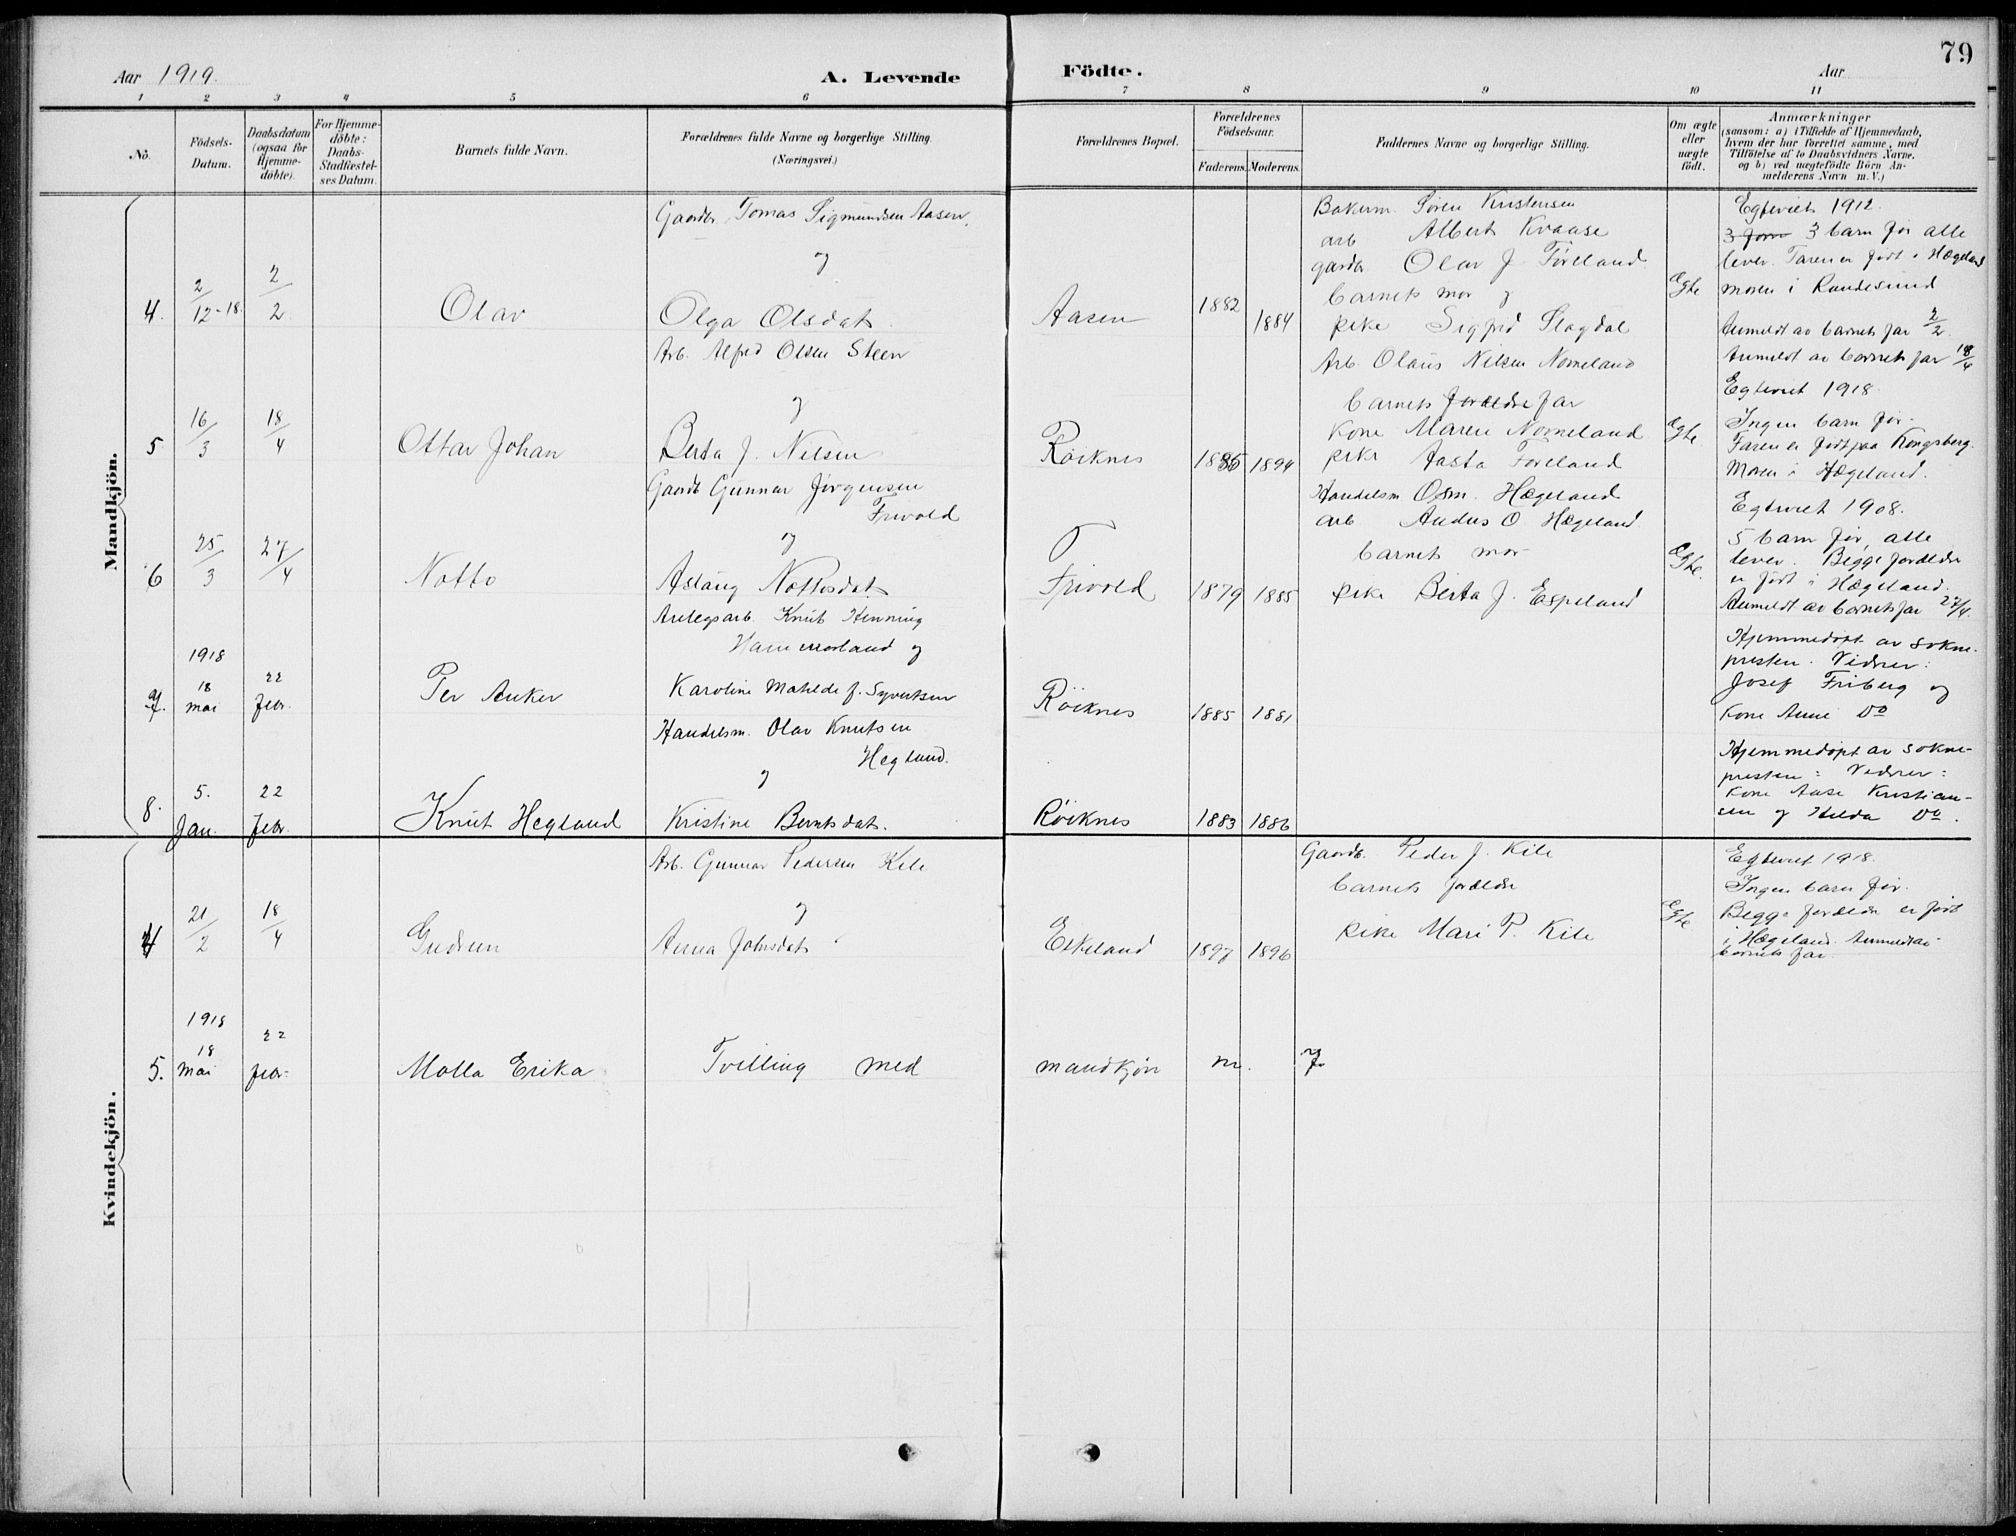 79
Aar 1919.
A. Levende
Födte.
Aar
1 2 3 4 5 6 7 8 9 10 11
No.
Födsels-
Datum.
Daabsdatum
(ogsaa for
Hjemme-
döbte).
For Hjemme-
döbte:
Daabs-
Stadfæstel-
ses Datum.
Barnets fulde Navn.
Forældrenes fulde Navne og borgerlige Stilling.
(Næringsvei.)
Forældrenes Bopæl.
Forældrenes
Födselsaar.
Faderens. Moderens.
Faddernes Navne og borgerlige Stilling.
Om ægte
eller
uægte
födt.
Anmærkninger
(saasom: a) i Tilfælde af Hjemmedaab,
hvem der har forrettet samme, med
Tilföielse af to Daabsvidners Navne,
og b) ved uægtefödte Börn An-
melderens Navn m. V.)
Mandkjön.
4.
2/12-18.
2/2.
Olav
Gaardbr. Tomas Sigmundsen Aasen.
og
Olga Olsdat.
Aasen
1882
1884
Bakerm. Sören Kristensen
arb Albert Kvaase
gardbr Olav J. Föreland.
barnets mor og
pike Sigfrid Slagdal
Egte
Egteviet 1912.
3 barn før alle
lever. Faren er født i Hægeland
moren i Randesund
Anmeldt av barnets far 2/2.
5
16/3
18/4
Ottar Johan
Arb. Alfred Olsen Steen
og
Berta J. Nilsen
Röiknes
1894
Arb. Olaus Nilsen Nomeland
barnets far
kone Maren Nomeland
pike Aasta Föreland
Egte
Anmeldt av barnets far 18/4
Egteviet 1918.
Ingen barn før.
Faren er født paa Kongsberg.
Moren i Hægeland.
6
25/3
27/4
Notto
Gaardb. Gunnar Jørgensen
Frivold
og
Aslaug Nottosdat.
Frivold
1879
1885
Handelsm. Osm. Hægeland
arb Anders O. Hægeland.
barnets mor
pike Berta J. Espeland
Egte.
Egteviet 1908.
5 barn før, alle
lever. Begge forældre
er født i Hægeland.
Anmeldt av barnets far 27/4.
7.
1918
18
mai
22
febr.
Per Anker
Anlegsarb. Knut Henning
Hammerland og
Karoline Matilde f. Syvertsen
Röiknes
1885
1881
Hjemmedøpt av sokne-
presten. Vidner:
Josef Friberg og
kone Anne Do
8.
5.
Jan.
22
febr.
Knut Hegland
Handelsm. Olav Knutsen
Hegland.
og
Kristine Berntsdat.
Röiknes
1883
1886
Hjemmedøpt av sokne-
presten: Vidner:
kone Aase Kristian-
sen og Hilda Do.
Kvindekjön.
4
21/2
18/4
Gudrun
Arb. Gunnar Pedersen Kile
og
Anna Johnsdat.
Eskeland
1897
1896
Gaardb. Peder J. Kile
barnets forældre
pike Mari P. Kile
Egte
Egteviet 1918.
Ingen barn før.
Begge forældre er født
i Hægeland. Anmeldt av
barnets far.
5.
1918
18
mai
22
febr.
Molla Erika
Tvilling med
mandkjøn nr. 7